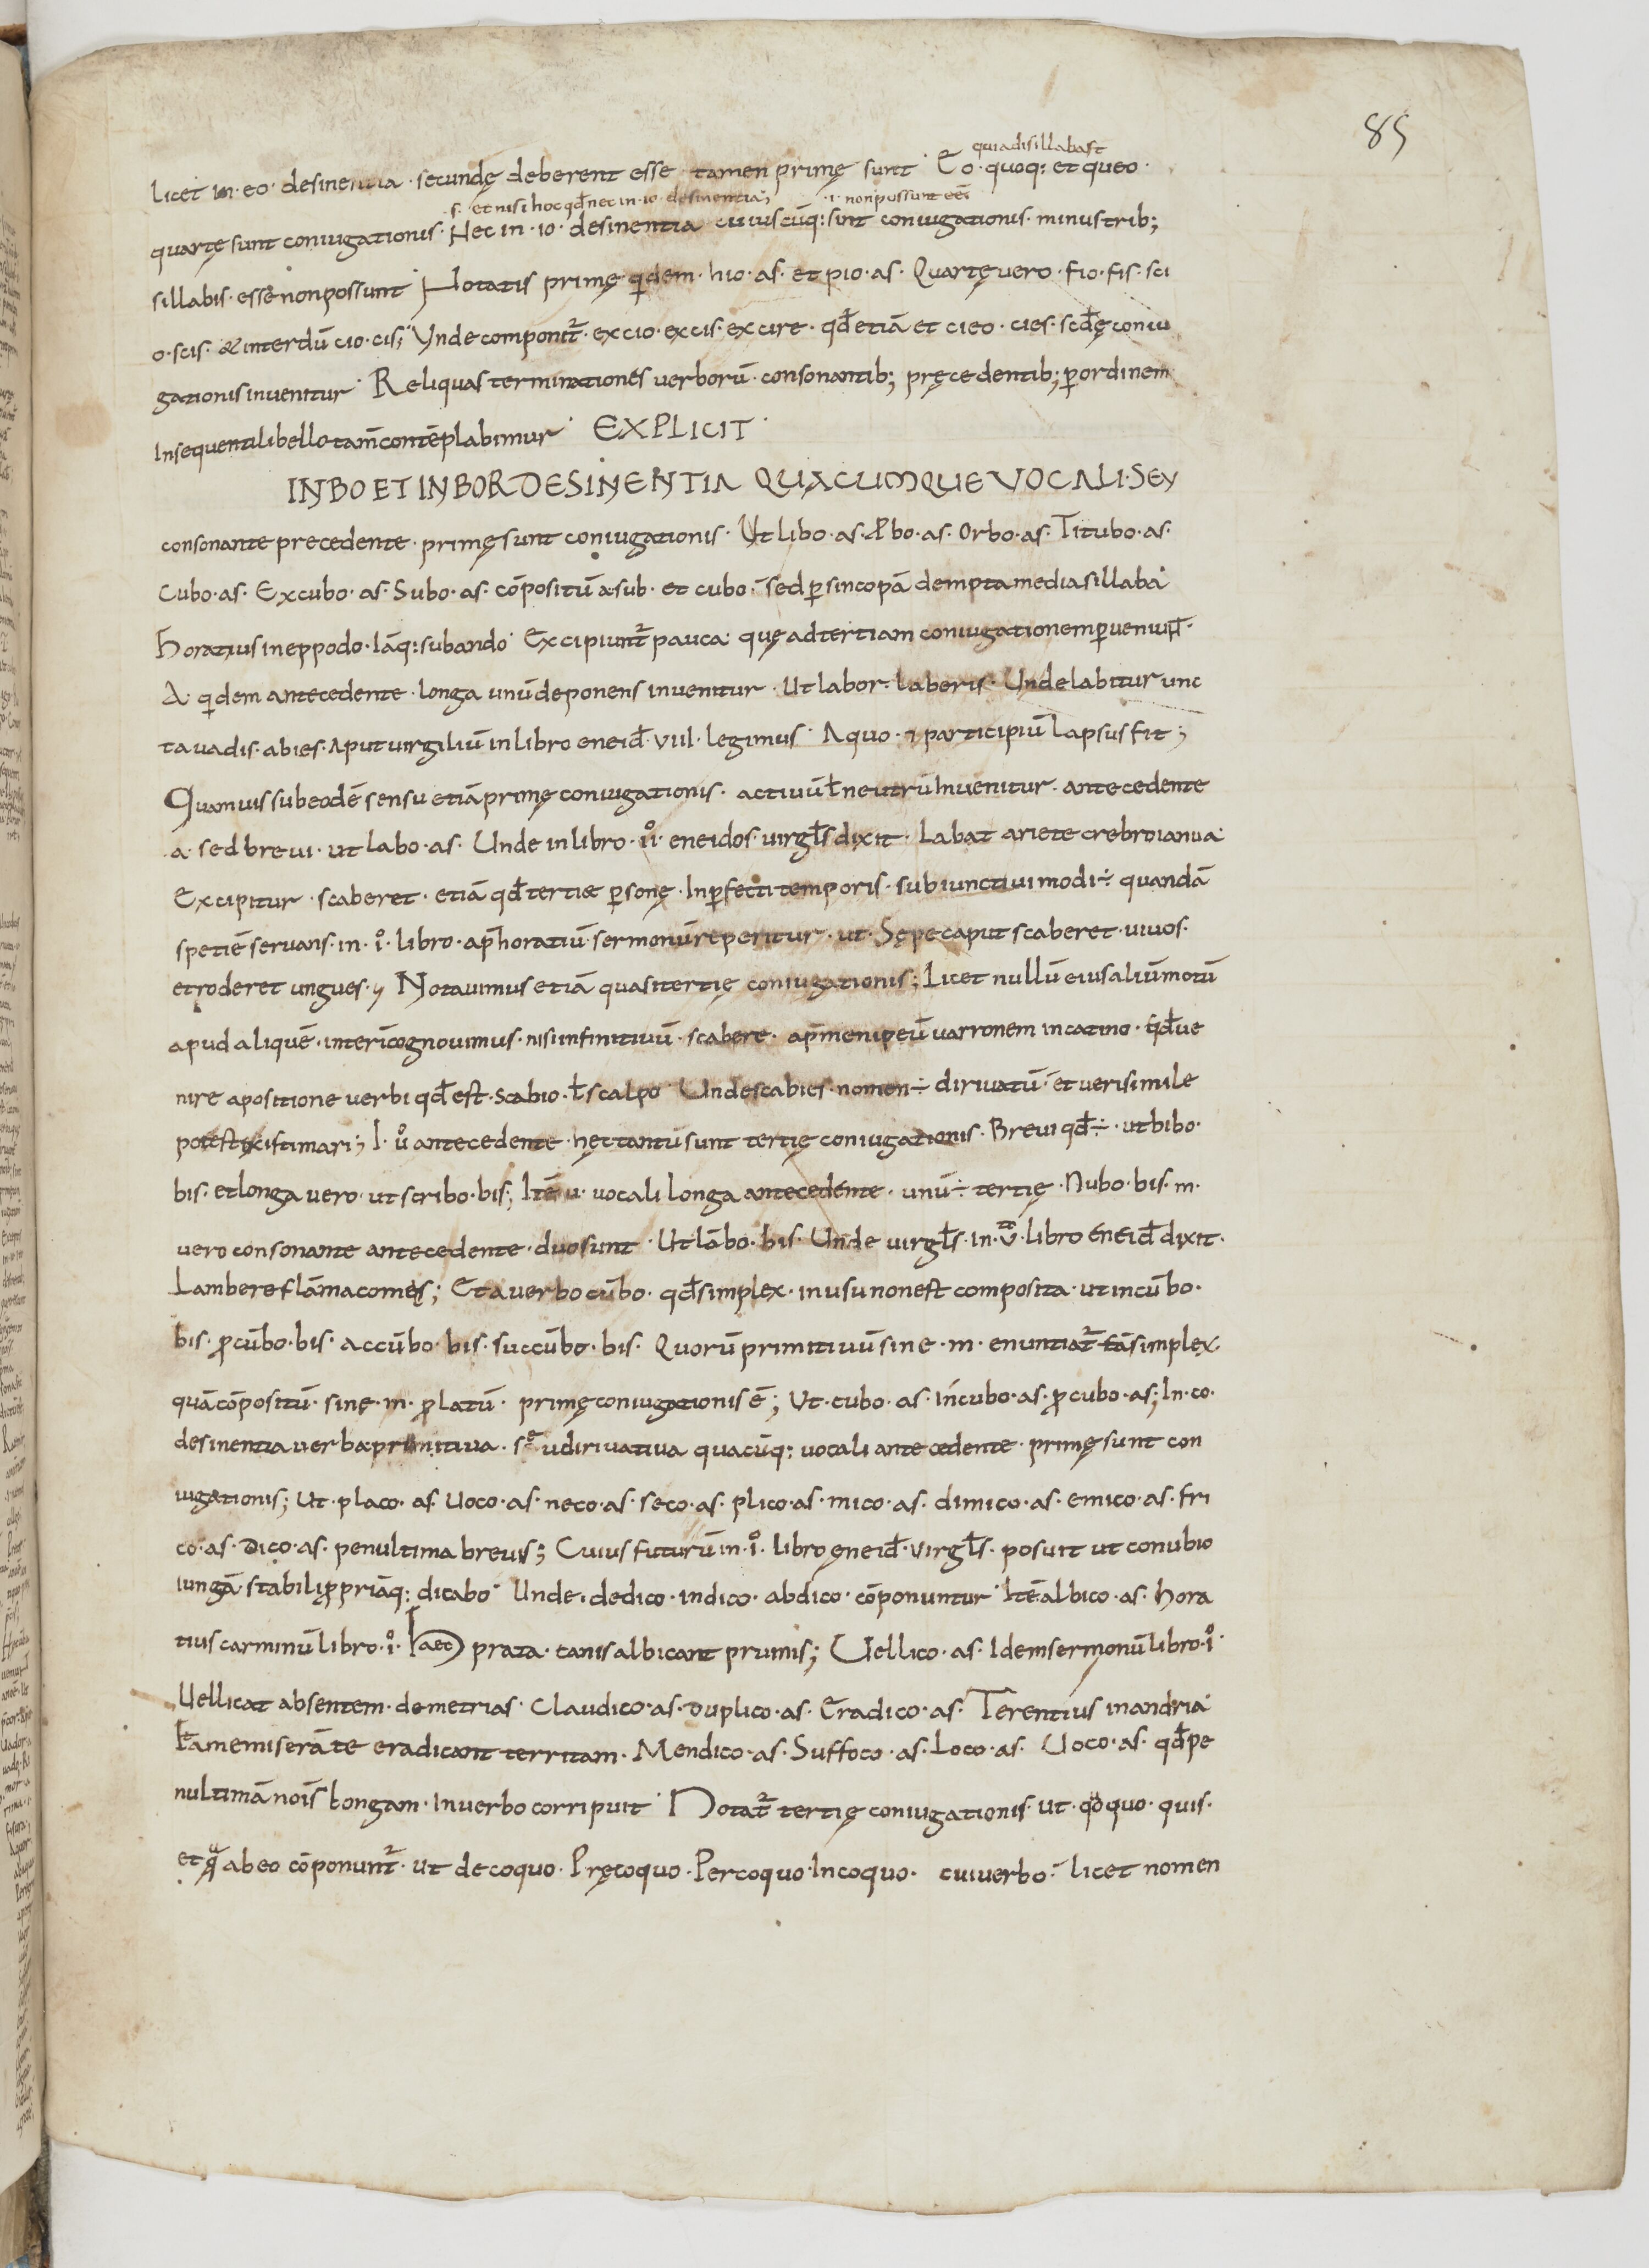 85
quia disillaba s̄t
licet in·eo· desinentia·secundę deberent esse tamen primę sunt· Eo·quoq: et queo·
.s̄. et nisi hoc qđ nec in·io·desinentia; ·i· non possunt eē
quartę sunt coniugationis· Nec in·io·desinentia cuiuscūq: sint coniugationis·minus trib;
sillabis·esse non possunt Notatis primę·qidem·hio·as·et pio·as·Quartę vero·fio·fis·sci
o·scis·&interdū cio·cis; Unde componit̄·excio·excis·excire·qđ etiā et cieo·cies·scđę coniu
gationis invenitur· Reliquas terminationes verborū·consonantib; pręcedentib; p ordinem
In sequenti libello tam̄ contēplabimur· EXPLICIT·
IN BO ET IN BOR DESINENTIA QUACUMQUE VOCALI·SEU
consonante precedente·primę sunt coniugationis·Ut libo·as·Albo·as·Orbo·as·Titubo·as·
Cubo·as·Excubo·as·Subo·as·cōpositū a sub·et cubo·sed p sincopā dempta media sillaba·
Horatius in eppodo·Iāq: subando· Excipiunt̄ pauca·quę ad tertiam coniugationem perveniunt̄·
A·qidem antecedente·longa unū deponens invenitur·Ut labor·laberis·Unde labitur unc
ta vadis·abies·Aput virgiliū in libro eneiđ·VIII·legimus· A quo·& participiū lapsus fit;
Quamuis sub eodē sensu etiā primę coniugationis·activū ł neutrū Invenitur·antecedente
·a·sed brevi·ut labo·as·Unde in libro·II°·eneidos·virgłs dixit·Labat ariete crebro ianua·
Excipitur·scaberet·etiā qđ tertiae psonę·Inpfecti temporis·subiunctivi modi÷ quandā
spetiē servans·in·I°·libro·ap horatiū·sermonū reperitur·ut·Sępe caput scaberet·vivos·
et roderet ungues·y Notavimus etiā quasi tertię coniugationis; Licet nullū eius aliū motū
apud aliquē·interī cognovimus·nisi infinitivū·scabere·ap menipeū varronem in catino·qđ ve
nire a positione verbi qđ est·scabio·ł scalpo· Unde scabies·nomen÷ dirivatū·et verisimile
potest existimari; I·u° antecedente·hęc tantū sunt tertię coniugationis·Brevi qđ÷·ut bibo·
bis·et longa vero·ut scribo·bis; Itē u·vocali longa antecedente·unū÷ tertię·Nubo·bis·m·
vero consonante antecedente·duo sunt·Ut lābo·bis·Unde virgłs·in·V·libro eneiđ dixit·
Lambere flāma comęs; Et a verbo cūbo·qđ simplex·in usu non est composita·ut incūbo·
bis·pcūbo·bis·accūbo·bis·succūbo·bis·Quorū primitivū sine·m·enuntiat̄ tā simplex
quā cōpositū·sinę·m·platū·primę coniugationis ē; Ut·cubo·as·incubo·as·pcubo·as; In·co·
desinentia verba primitiva·seu dirivativa quacūq: vocali antecedente·primę sunt con
iugationis; Ut·placo·as·Voco·as·neco·as·seco·as·plico·as·mico·as·dimico·as·emico·as·fri
co·as·Dico·as·penultima brevis; Cuius futurū in·I°·libro ęneiđ·Virgłs·posuit ut conubio
iungā stabili pprīaq: dicabo· Unde·dedico·indico·abdico·cōponuntur· Itē albico·as·Hora
tius carminū libro·I°· Naec prata·canis albicant pruinis; Vellico·as·Idem sermonū libro·I°·
Vellicat absentem·demetrias·Claudico·as·Duplico·as·Eradico·as·Terentius in andria·
Et a me miserā te eradicant territam·Mendico·as·Suffoco·as·Loco·as·Voco·as·qđ pe
nultimā noīs longam·in verbo corripuit· Notat̄ tertię coniugationis·Ut·quoquo·quis·
et quę ab eo cōponunt̄·ut decoquo·Pręcoquo·Percoquo·Incoquo· cui verbo·licet nomen